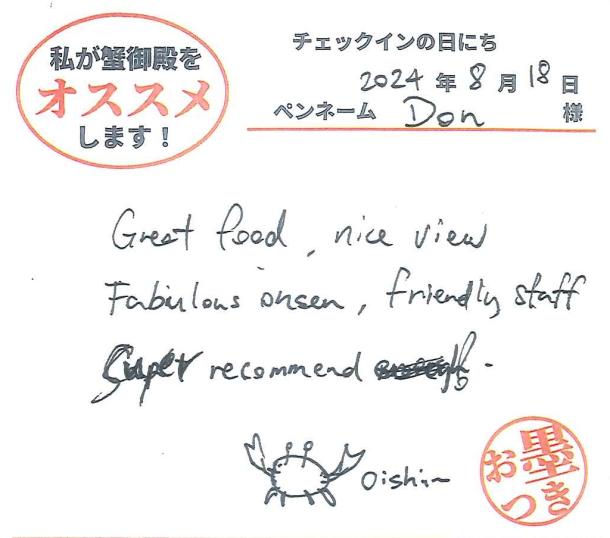 私が蟹御殿を
オススメ
します！
チェックインの日にち
2024年8月18日
ペンネーム Don 様
Great food, nice view
Fabulous onsen, friendly staff
Super recommend .
Oishi~
お墨
つき